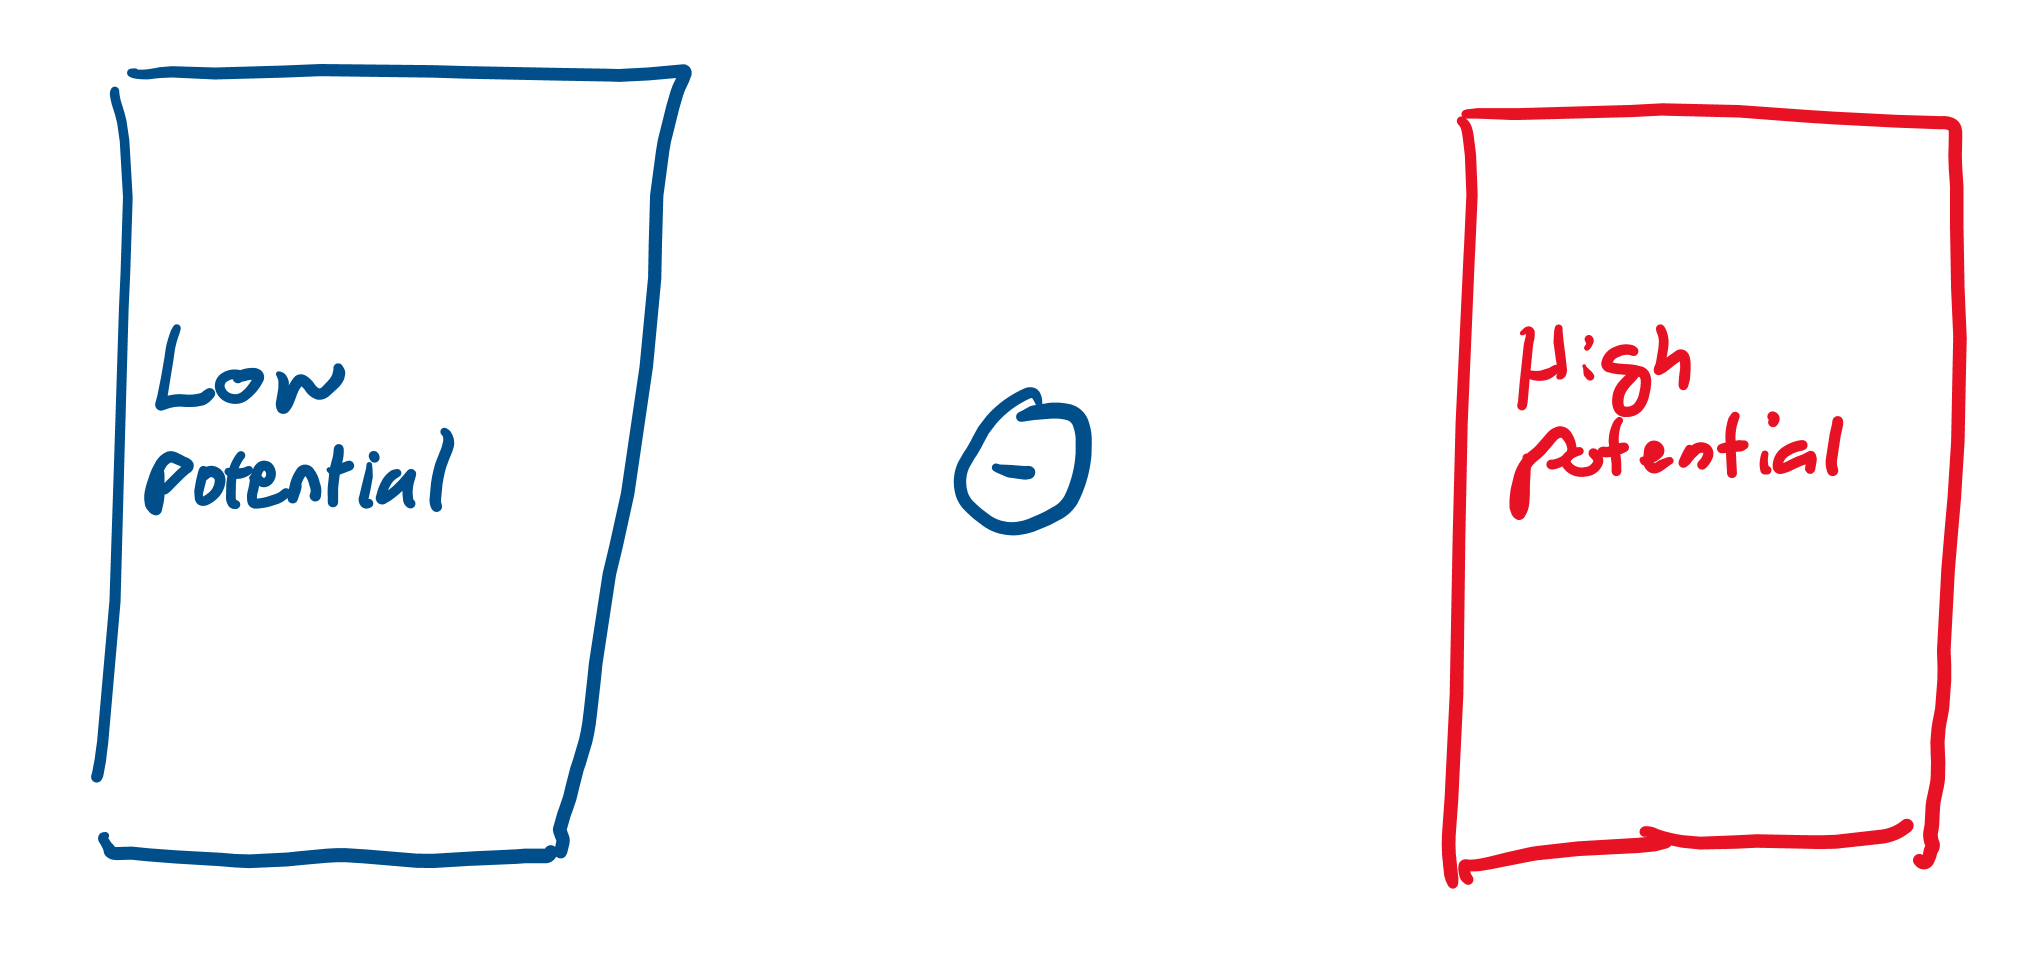 Low
potential
-
High
potential